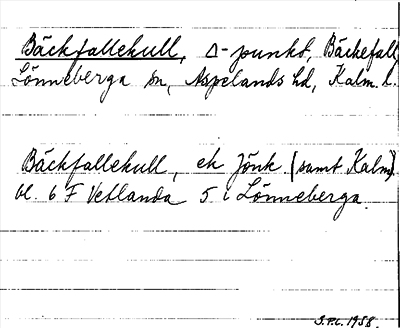 Bäckfallekull, Δ-punkt, Bäckefall,
Lönneberga sn, Aspelands hd, Kalm. l.
Bäckfallekull, ek Jönk (samt Kalm)
bl. 6 F Vetlanda 5 i Lönneberga.
S.P.L. 1958.